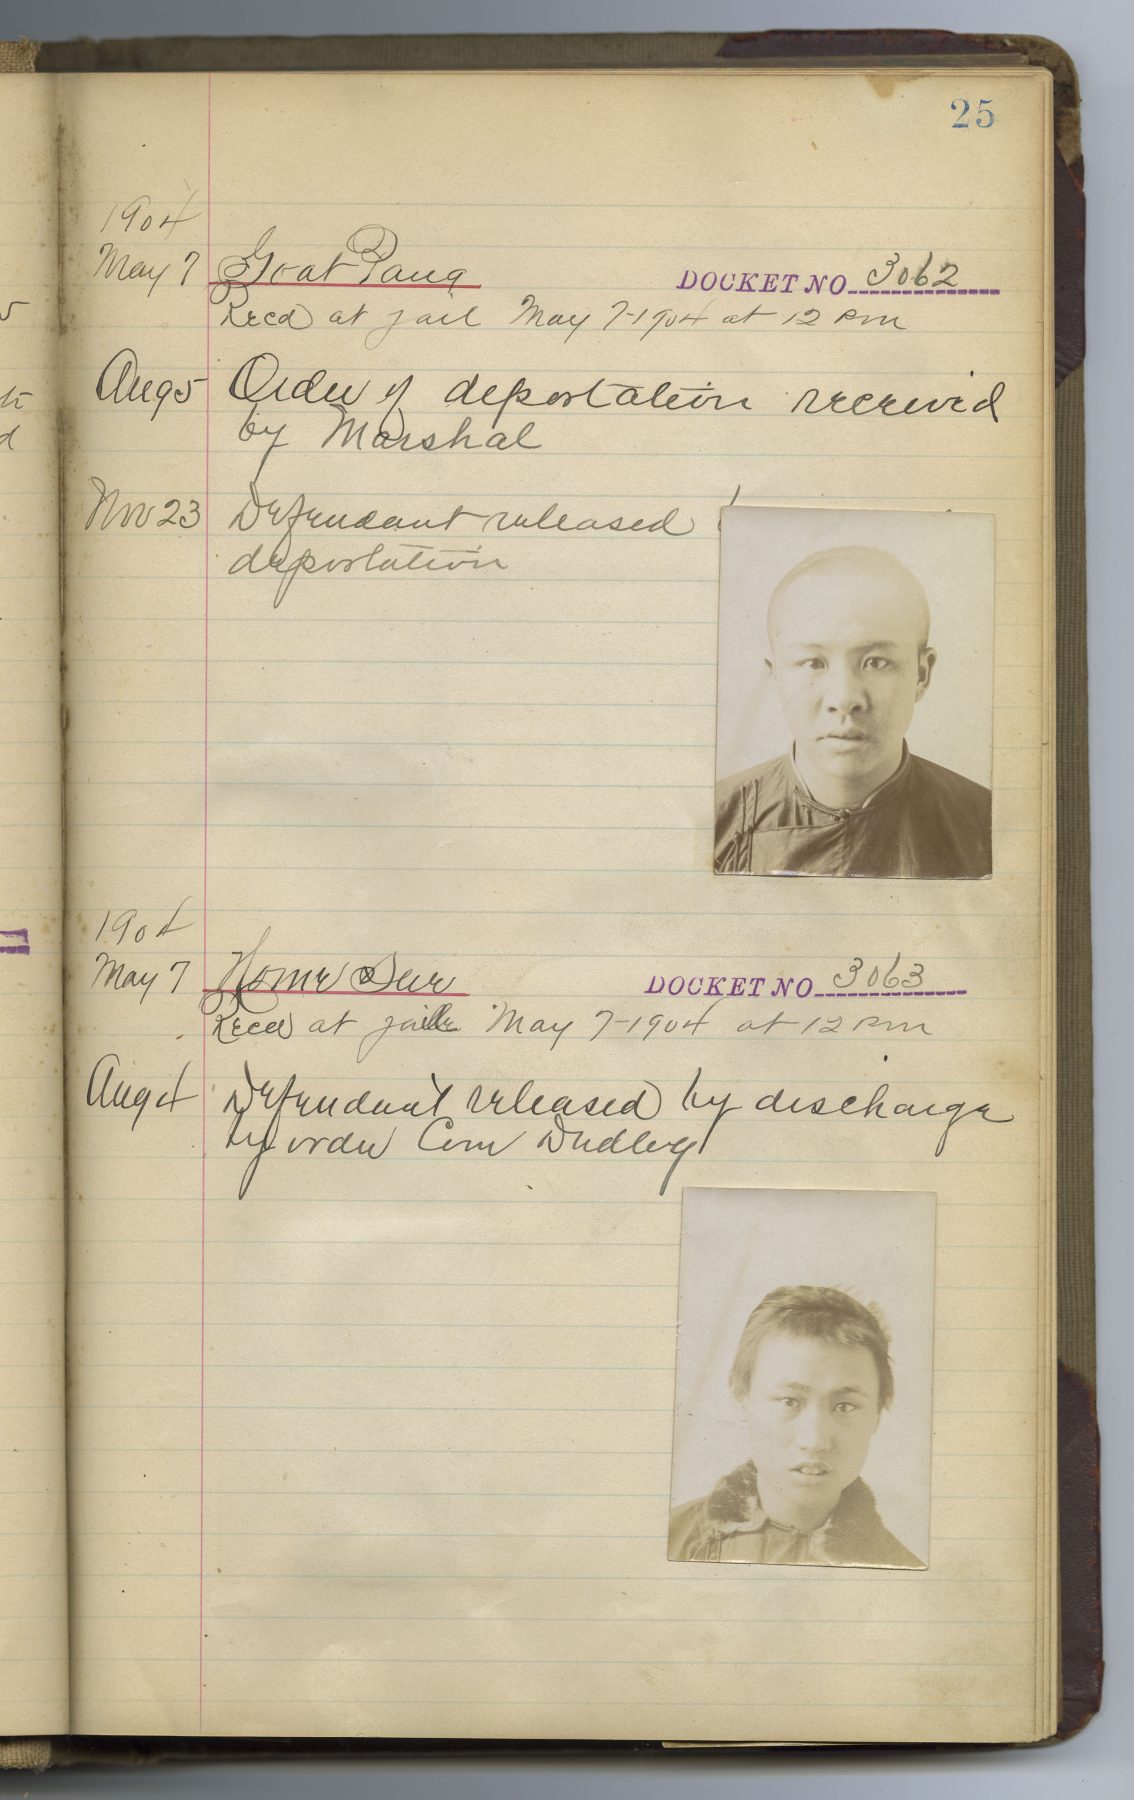 25
1904
May 7 Goat Pang DOCKET NO 3062
Recd at jail May 7-1904 at 12 pm
Aug 5 Order of deportation received
by Marshal
Nov 23 Defendant released
deportation
1904
May 7 Home Sue DOCKET NO 3063
Recd at jail May 7-1904 at 12 pm
Aug 4 Defendant released by discharge
by order Com Dudley